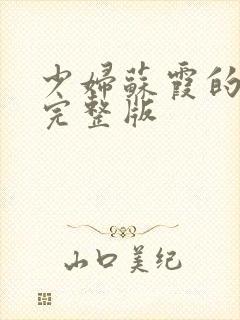 少婦蘇霞的
完整版
山口美纪